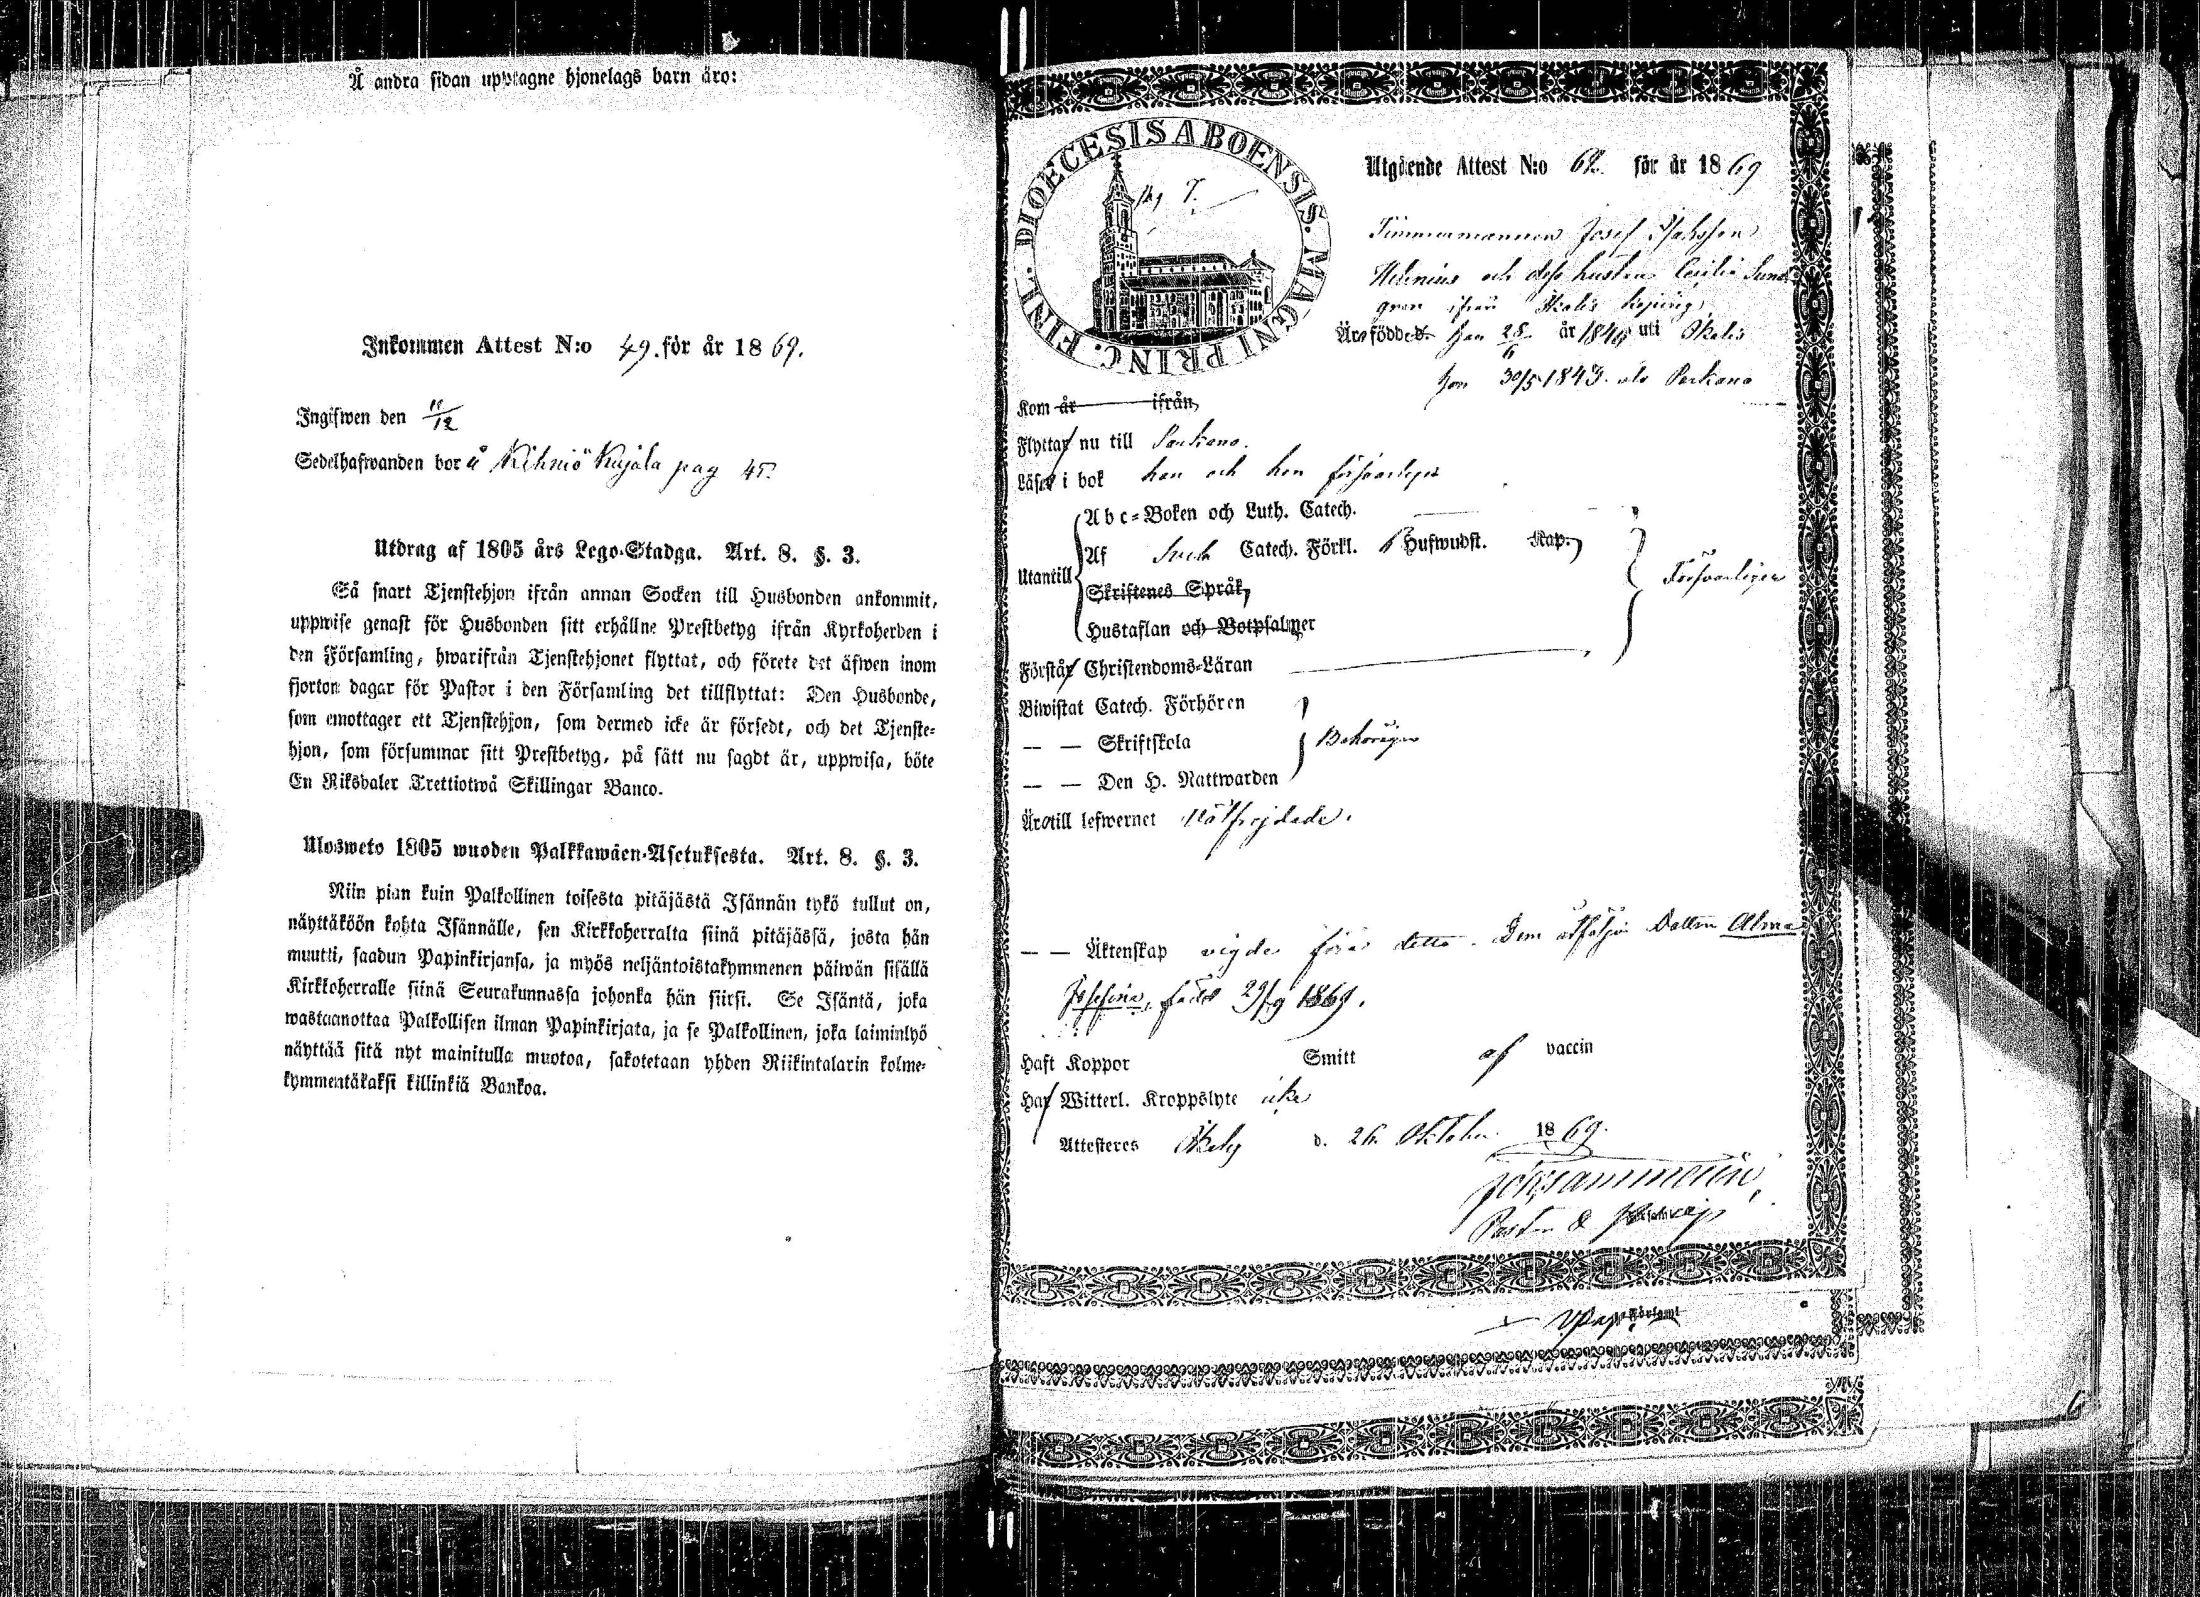 Å andra sidan upptagne hjonelags barn äro:
Inkommen Attest N:o 49. för år 1869.
Ingifwen den 11/12
Sedelhafwanden bor å Kihniö Kujala pag 45
Utdrag af 1805 års Lego-Stadga. Art. 8. §. 3.
Så snart Tjenstehjon ifrån annan Socken till Husbonden ankommit,
uppwise genast för Husbonden sitt erhållne Prestbetyg ifrån Kyrkoherden i
den Församling, hwarifrån Tjenstehjonet flyttat, och förete det äfwen inom
fjorton dagar för Pastor i den Församling det tillflyttat: Den Husbonde,
som emottager ett Tjenstehjon, som dermed icke är försedt, och det Tjenste-
hjon, som försummar sitt Prestbetyg, på sätt nu sagdt är, uppwisa, böte
En Riksdaler Trettiotwå Skillingar Banco.
Ulosweto 1805 wuoden Palkkawäen-Asetuksesta. Art. 8. §. 3.
Niin pian kuin Palkollinen toisesta pitäjästä Isännän tykö tullut on,
näyttäköön kohta Isännälle, sen Kirkkoherralta siinä pitäjässä, josta hän
muutti, saadun Papinkirjansa, ja myös neljäntoistakymmenen päiwän sisällä
Kirkkoherralle siinä Seurakunnassa johonka hän siirsi. Se Isäntä, joka
wastaanottaa Palkollisen ilman Papinkirjata, ja se Palkollinen, joka laiminlyö
näyttää sitä nyt mainitulla muotoa, sakotetaan yhden Riikintalarin kolme-
kymmentäkaksi killinkiä Bankoa.
DIOECESIS ABOENSIS. MAGNI PRINC. FINL.
pag 7.
Utgående Attest N:o 62. för år 1869
Timmermannen Josef Isaksson
Helenius och dess hustru Cecilia Sund
gren ifrån Ikalis köping,
Äro födde han 28/6 år 1840 uti Ikalis
hon 30/5 1843. uti Parkano
Kom år ifrån
Flyttar nu till Parkano.
Läser i bok han och hon försvarligen
Utantill
Abc-Boken och Luth. Catech.
Af Sveb Catech. Förkl. Hufwudst. Kap.
Skriftenes Språk,
Hustaflan och Botpsalmer
Försvarligen
Förstår Christendoms-Läran
Biwistat Catech. Förhören
— — Skriftskola
— — Den H. Nattwarden
Behörigen
Äro till lefwernet Wälfrejdade.
— — Äktenskap vigde förut detta. Dem åtföljer Dottren Alma
Josefina, född 29/9 1869.
Haft Koppor Smitt af vaccin
Har Witterl. Kroppslyte icke
Attesteres Ikalis d. 26 Oktober 1869.
Pastor